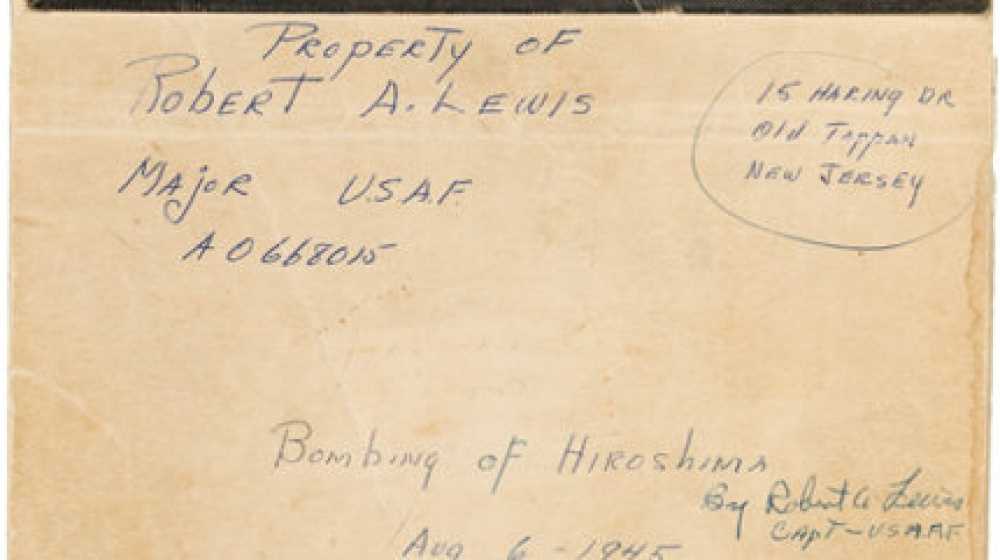 Property of
Robert A. Lewis
15 Haring Dr
Old Tappan
New Jersey
Major U.S.A.F.
A0668015
Bombing of Hiroshima
By Robert A Lewis
Capt - USAAF
Aug 6 - 1945